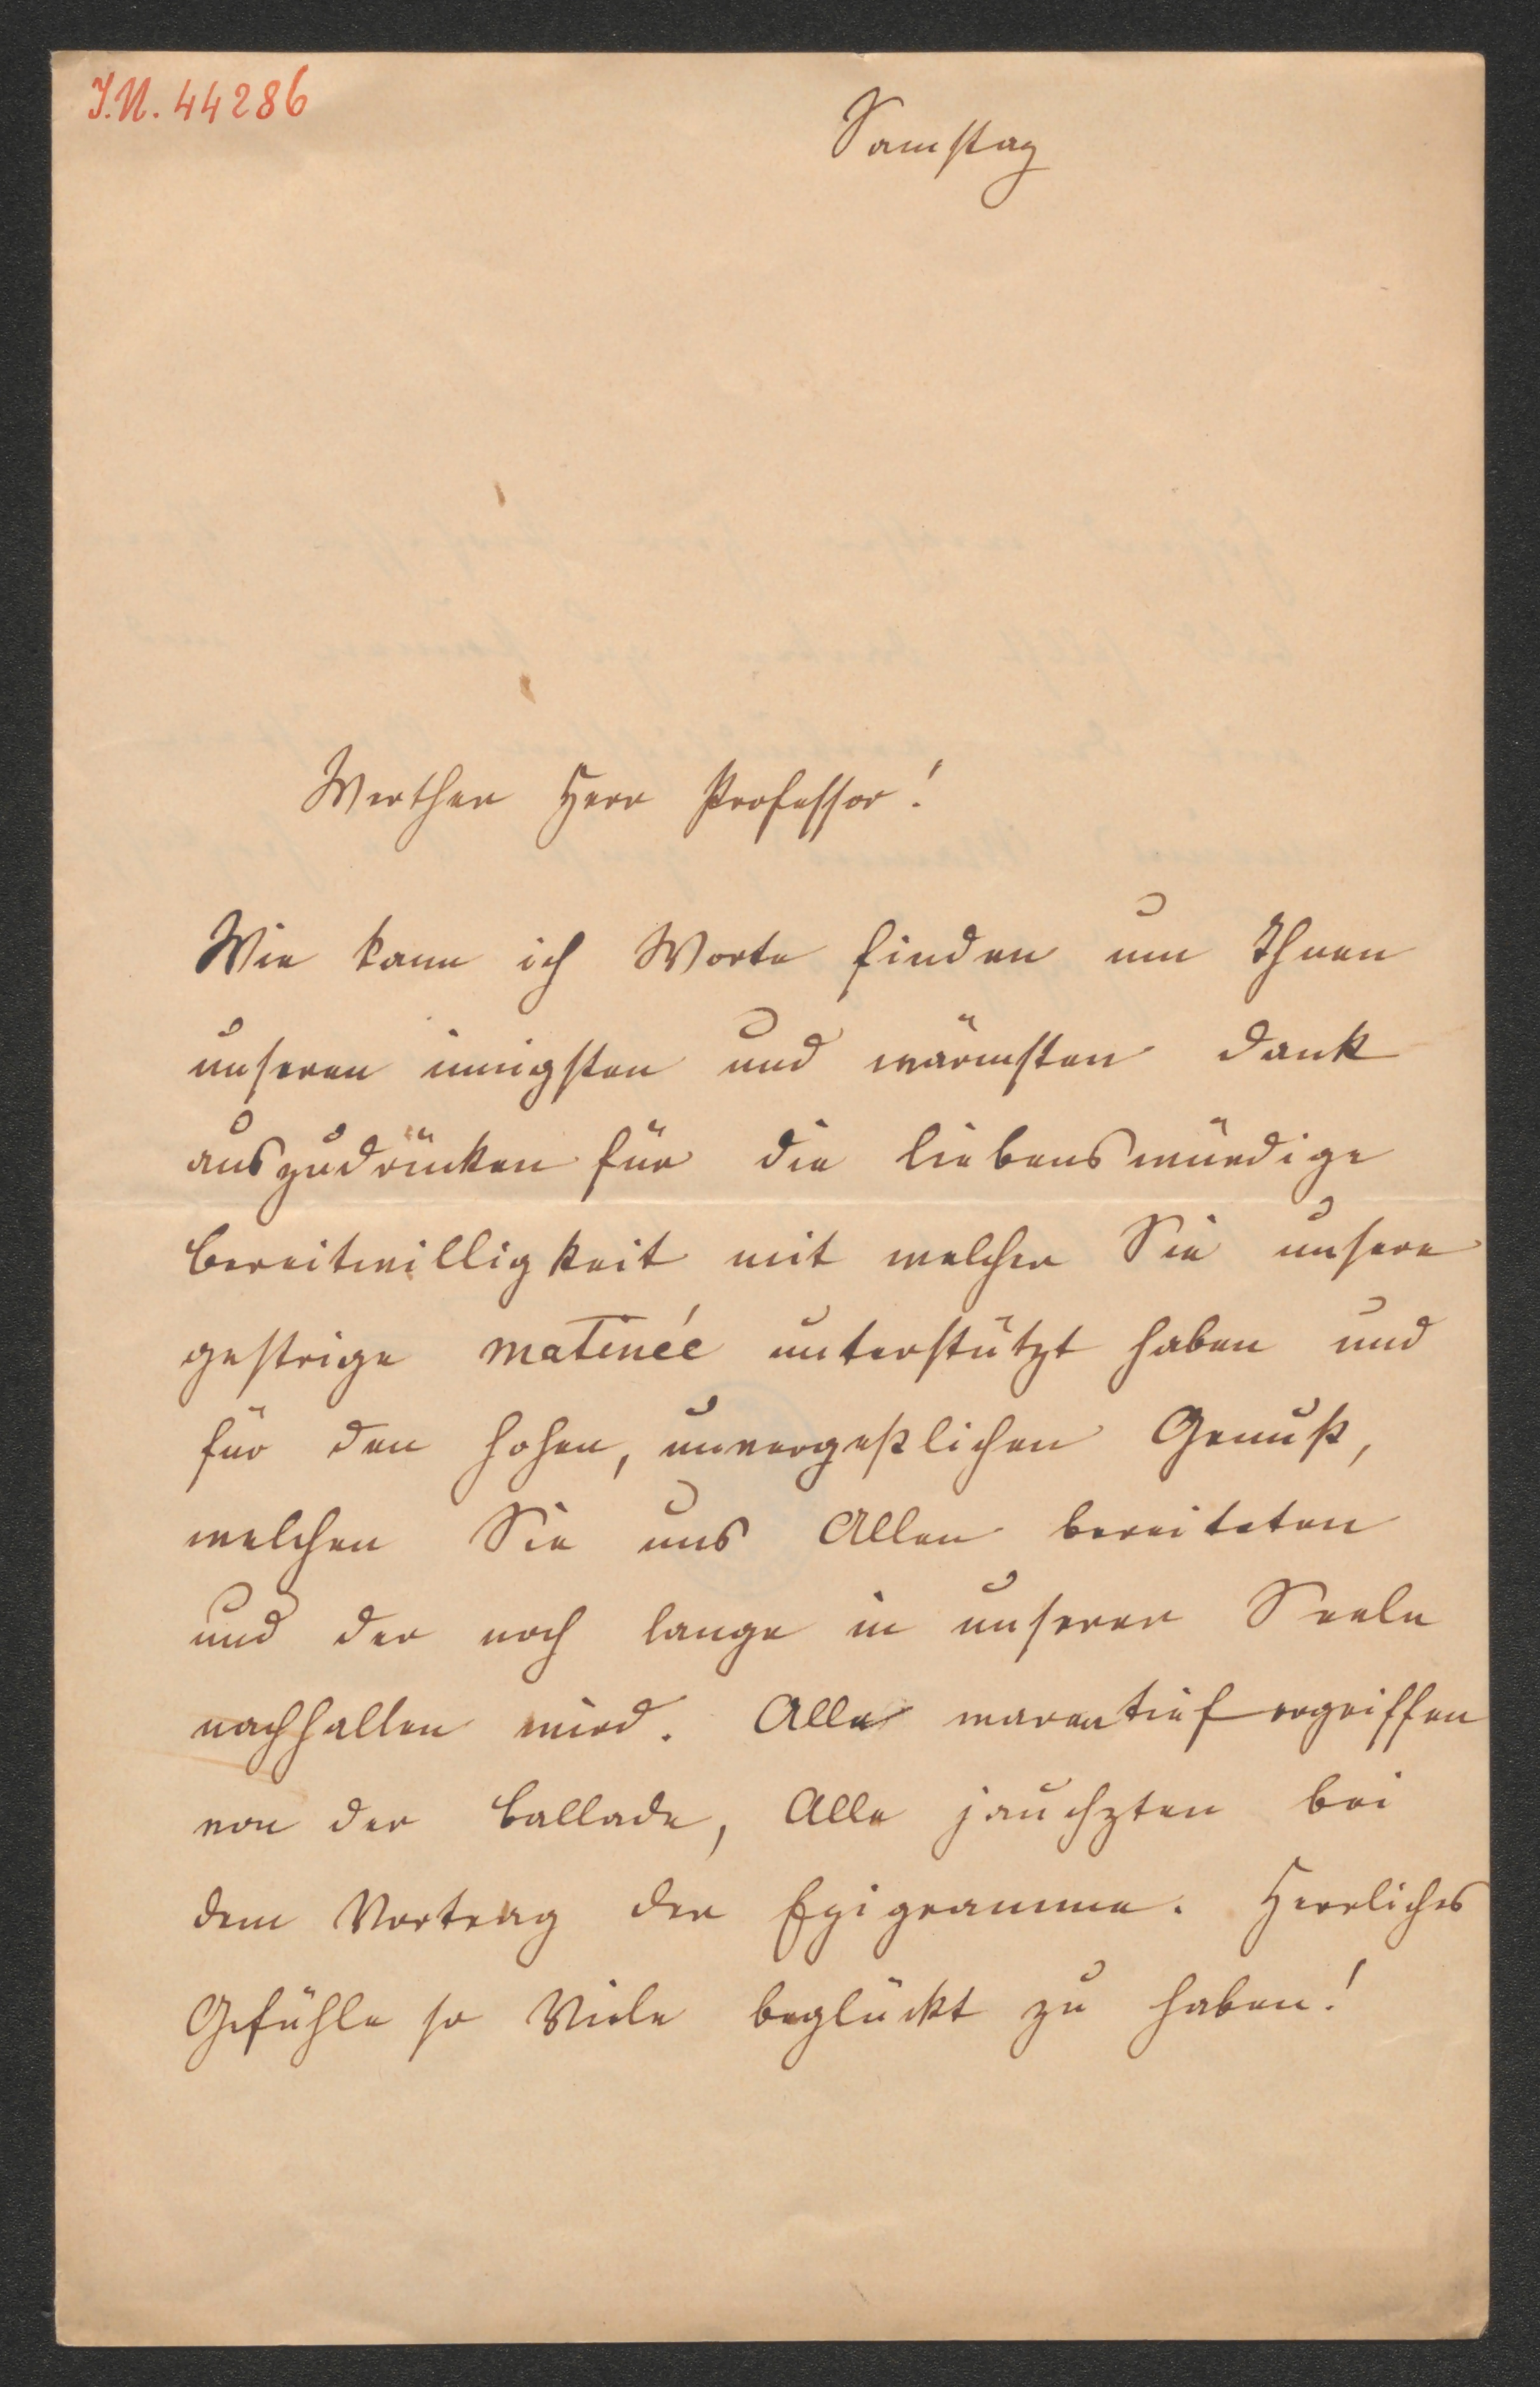 I.N. 44286
Samstag
Werther Herr Professor!
Wie kann ich Worte finden um Ihnen
unseren innigsten und wärmsten Dank
auszudrücken für die liebenswürdige
Bereitwilligkeit mit welcher Sie unsere
gestrige Matinée unterstützt haben und
für den hohen, unvergeßlichen Genuß,
welchen Sie uns Allen bereiteten
und der noch lange in unserer Seele
nachhallen wird. Alle waren tief ergriffen
von der Ballade, Alle jauchzten bei
dem Vortrag der Epigramme. Herrliches
Gefühle so Viele beglückt zu haben!